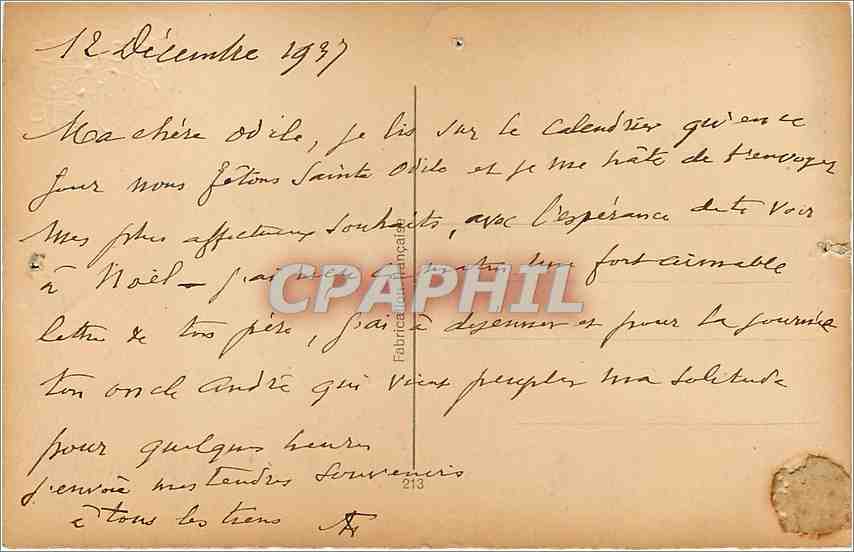 12 Décembre 1937
Ma chère Odile, je lis sur le calendrier qu'en ce
jour nous fêtons Sainte Odile et je me hâte de t'envoyer
mes plus affectueux souhaits, avec l'espérance de te voir
à Noël - j'ai une fort aimable
lettre de ton père, j'ai à déjeuner et pour la journée
ton oncle André qui vient peupler ma solitude
pour quelques heures
j'envoie mes tendres souvenirs
à tous les tiens
Fabrication Française
213
CPAPHIL